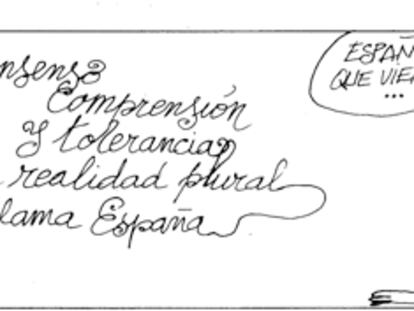 nsenso
Comprensión
y tolerancia
realidad plural
lama España
ESPAÑ
QUE VIE
...